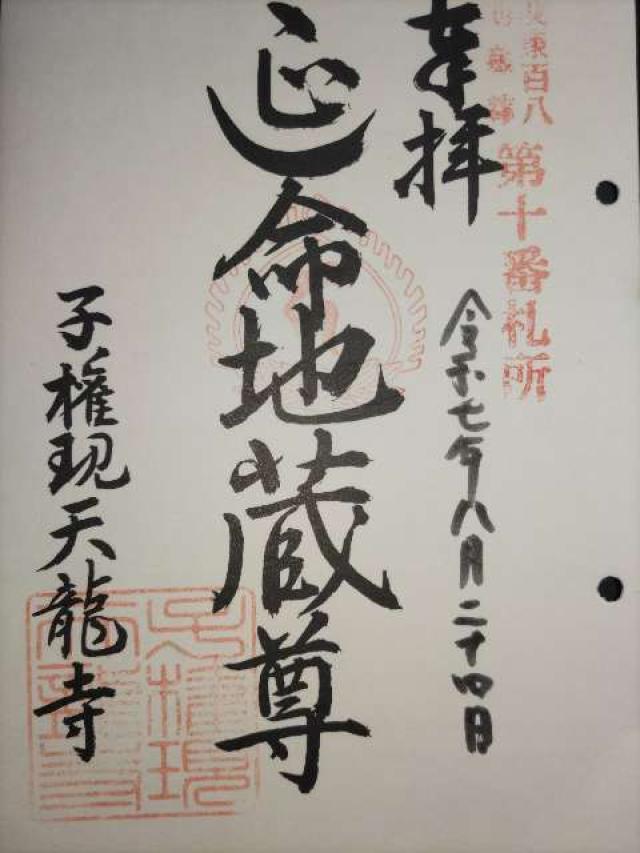 東百八
第十番札所
奉拝
令和七年八月二十四日
延命地蔵尊
子権現天龍寺
子権現
天龍寺